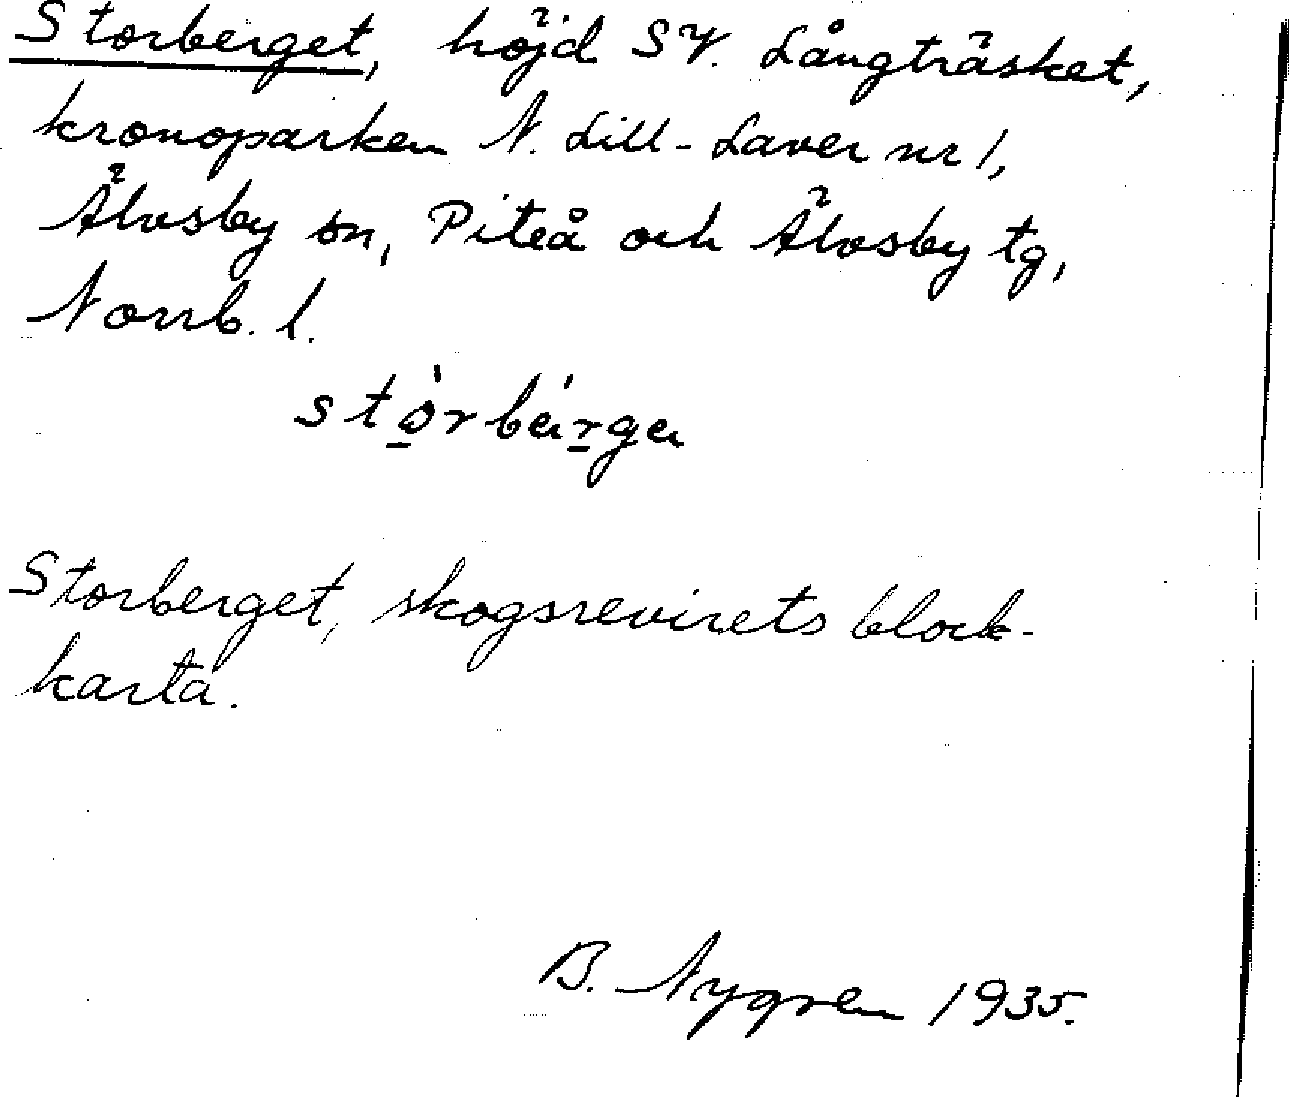 Storberget, höjd SV. Långträsket,
kronoparken N. Lill-Laver nr 1,
Älvsby sn, Piteå och Älvsby tg,
Norrb. l.
stórbérga
Storberget, skogsrevirets block-
karta.
B. Nygren 1935.